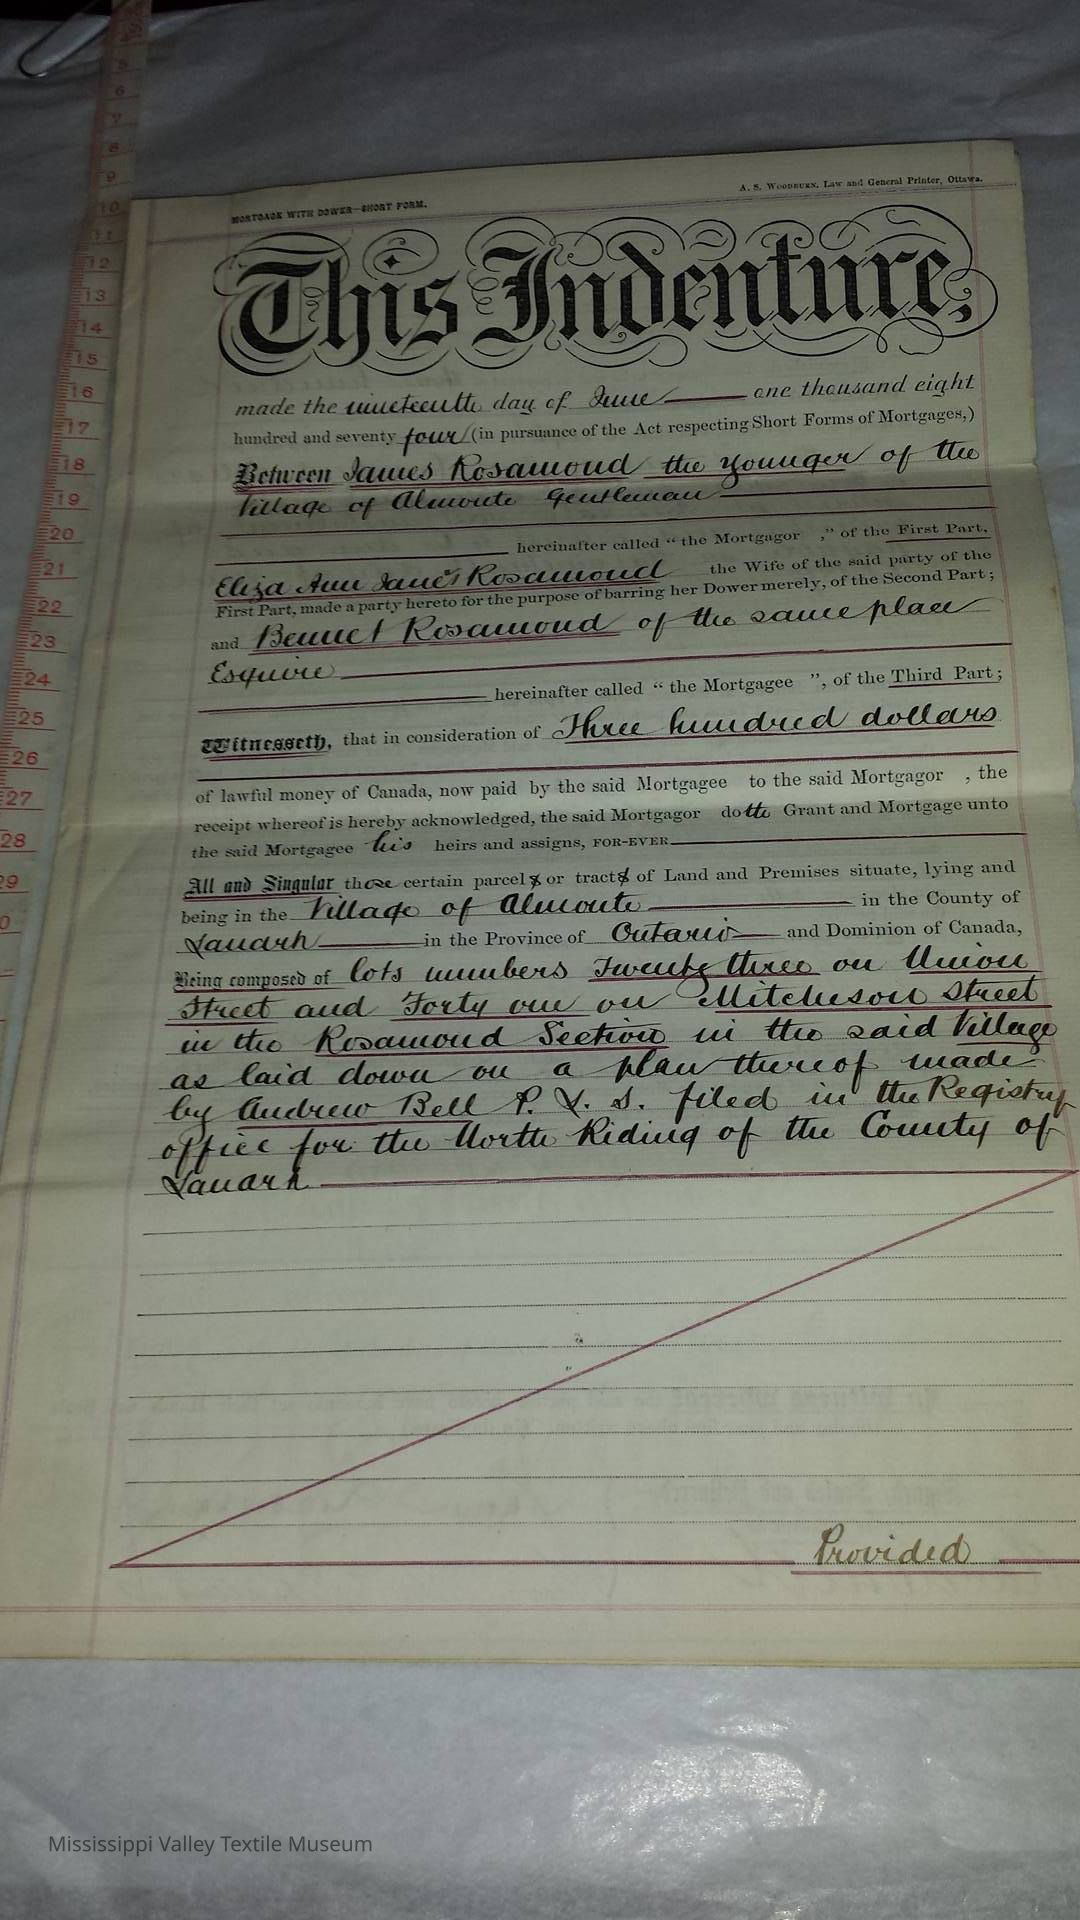 MORTGAGE WITH DOWER—SHORT FORM.
A. S. WOODBURN, Law and General Printer, Ottawa.
This Indenture,
made the nineteenth day of June one thousand eight
hundred and seventy four (in pursuance of the Act respecting Short Forms of Mortgages,)
Between James Rosamond the younger of the
Village of Almonte Gentleman
hereinafter called “the Mortgagor ,” of the First Part,
Eliza Ann Jane Rosamond the Wife of the said party of the
First Part, made a party hereto for the purpose of barring her Dower merely, of the Second Part;
and Bennet Rosamond of the same place
Esquire
hereinafter called “the Mortgagee ”, of the Third Part;
Witnesseth, that in consideration of Three hundred dollars
of lawful money of Canada, now paid by the said Mortgagee to the said Mortgagor , the
receipt whereof is hereby acknowledged, the said Mortgagor doth Grant and Mortgage unto
the said Mortgagee his heirs and assigns, FOR-EVER
All and Singular those certain parcels or tracts of Land and Premises situate, lying and
being in the Village of Almonte in the County of
Lanark in the Province of Ontario and Dominion of Canada,
Being composed of lots numbers Twenty three on Union
Street and Forty one on Mitcheson Street
in the Rosamond Section in the said Village
as laid down on a plan thereof made
by Andrew Bell P. L. S. filed in the Registry
office for the North Riding of the County of
Lanark
Provided
10
11
12
13
14
15
16
17
18
19
20
21
22
23
24
25
26
27
28
Mississippi Valley Textile Museum